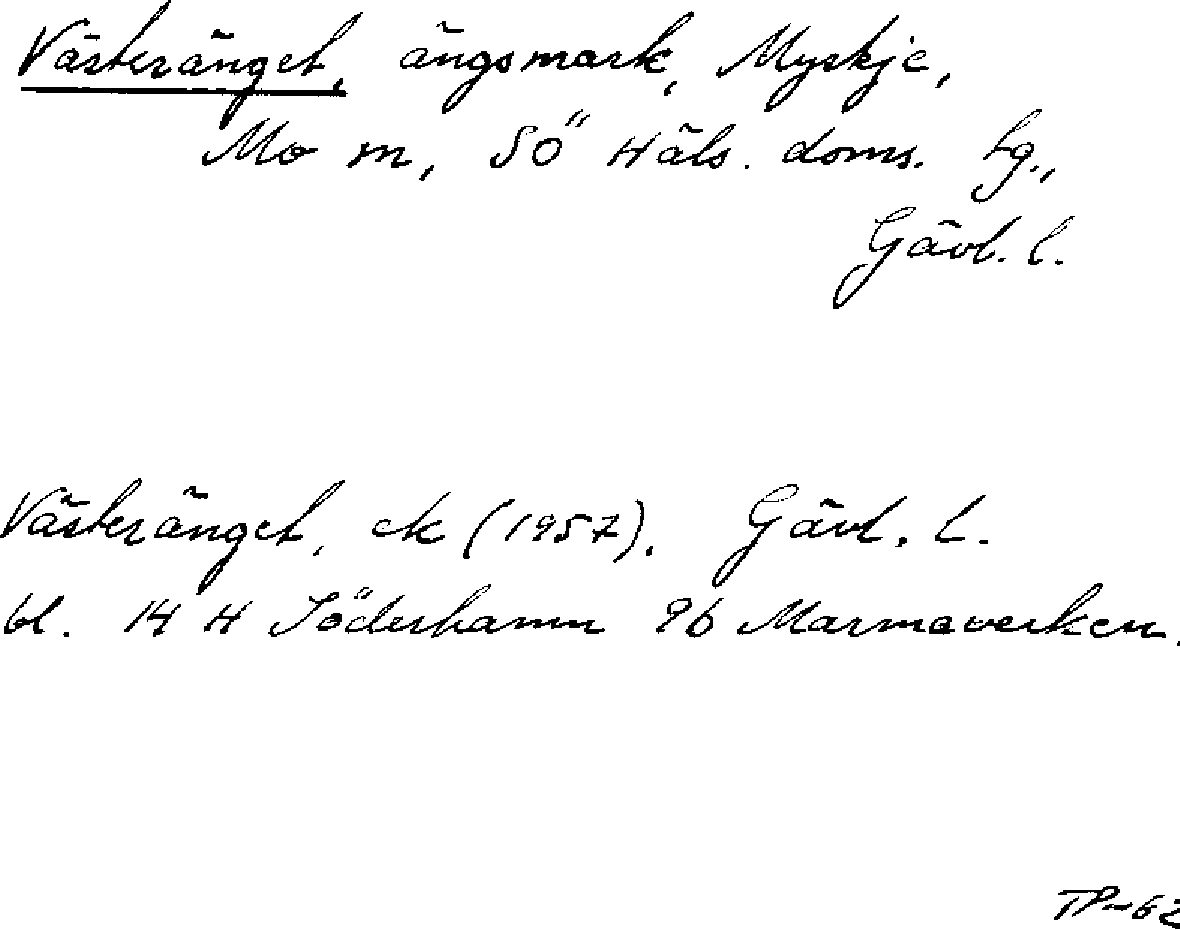 Västeränget, ängsmark, Myskje,
Mo sn, SÖ Häls. doms. hg.,
Gävl. l.
Västeränget, ek (1957), Gävl. l.
bl. 14 H Söderhamn 9b Marmaverken.
TP-62